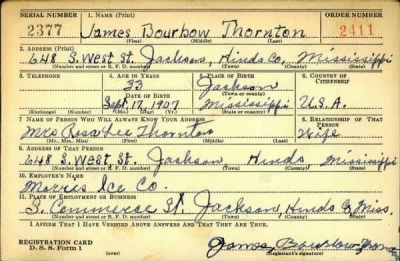 SERIAL NUMBER 1. NAME (Print) ORDER NUMBER
2377 James Bourbow Thornton 2411
2. ADDRESS (Print)
648 S. West St. Jackson, Hinds Co, Mississippi
(Number and street or R. F. D. number) (Town) (County) (State)
3. TELEPHONE 4. AGE IN YEARS 5. PLACE OF BIRTH 6. COUNTRY OF CITIZENSHIP
33 Jackson
DATE OF BIRTH (Town or county)
Sept. 17, 1907 Mississippi U.S.A.
(Exchange) (Number) (Mo.) (Day) (Yr.) (State or country)
7. NAME OF PERSON WHO WILL ALWAYS KNOW YOUR ADDRESS 8. RELATIONSHIP OF THAT PERSON
Mrs Rosa Lee Thornton Wife
(Mr., Mrs., Miss) (First) (Middle) (Last)
9. ADDRESS OF THAT PERSON
648 S. West St. Jackson Hinds, Mississippi
(Number and street or R. F. D. number) (Town) (County) (State)
10. EMPLOYER'S NAME
Morris Ice Co.
11. PLACE OF EMPLOYMENT OR BUSINESS
S. Commerce St. Jackson, Hinds Co, Miss.
(Number and street or R. F. D. number) (Town) (County) (State)
I AFFIRM THAT I HAVE VERIFIED ABOVE ANSWERS AND THAT THEY ARE TRUE.
REGISTRATION CARD
D. S. S. FORM 1 James Bourbow
(Registrant's signature)